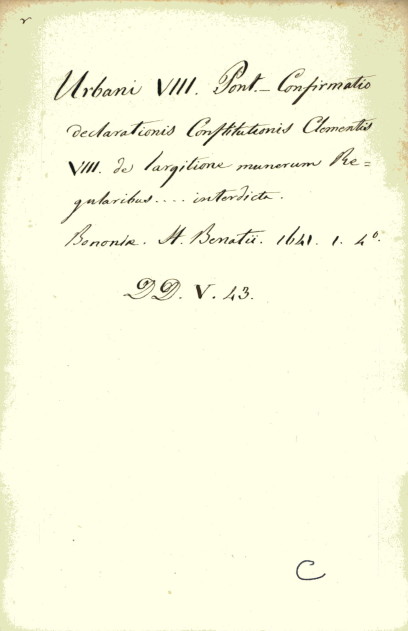 Urbani VIII. Pont. — Confirmatio
declarationis Constitutionis Clementis
VIII. de largitione munerum Re=
gularibus.... interdicta.
Bononiæ. H. Benatii. 1641. 1. 4º.
DD. V. 43.
C